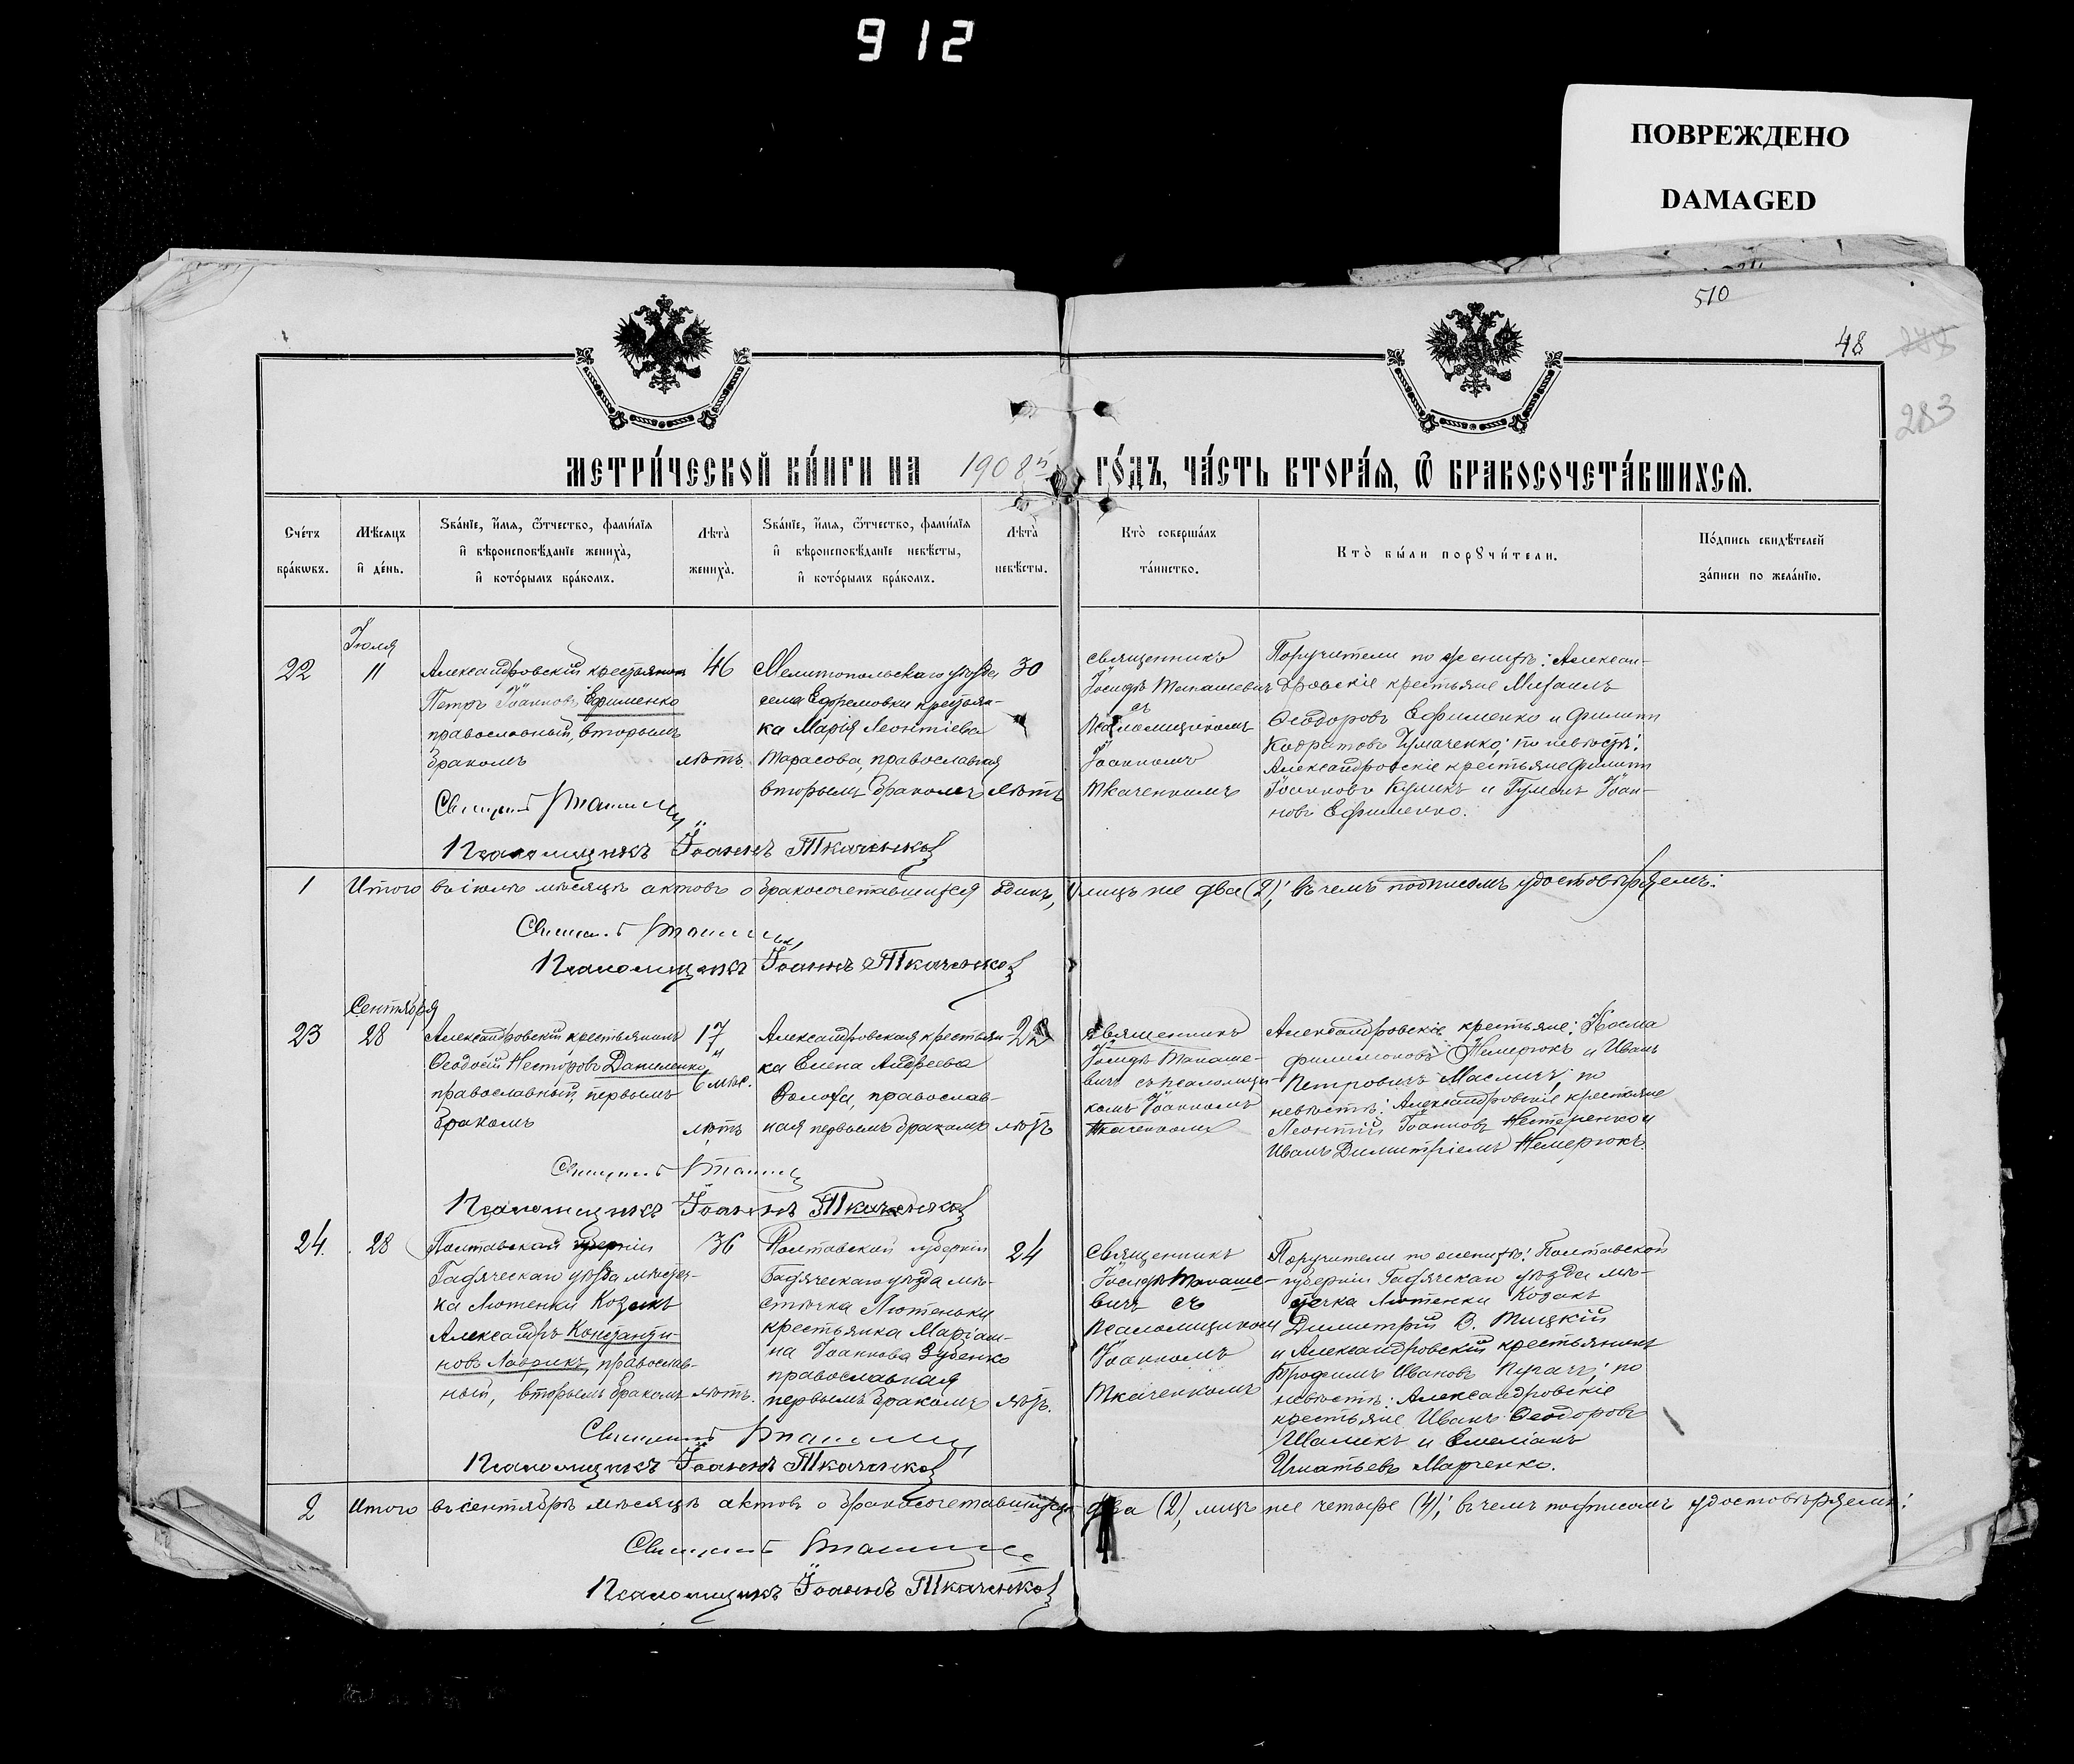 912
ПОВРЕЖДЕНО
DAMAGED
510
48
283
МЕТРИ́ЧЕСКОЙ КНИ́ГИ НА 1908й ГО́ДЪ, ЧА́СТЬ ВТОРА́Я, Ѿ БРАКОСОЧЕТА́ВШИХСЯ.
Сче́тъ
бра́кѡвъ.
Мѣсяцъ
и де́нь.
Зва́нїе, и́мя, ѻ́тчество, фами́лїя
и вѣроисповѣ́данїе жениха̀,
и кото́рымъ бра́комъ.
Лѣта̀
жениха̀.
Зва́нїе, и́мя, ѻ́тчество, фами́лїя
и вѣроисповѣ́данїе невѣ́сты,
и кото́рымъ бра́комъ.
Лѣта̀
невѣ́сты.
Кто̀ соверша́лъ
та́инство.
Кто̀ бы́ли порꙋчи́тели.
По́дпись свидѣ́телей
за́писи по жела́нїю.
22
Іюля
11
Александровскій крестьянинъ
Петръ Іоанновъ Ефименко
православный, вторымъ
бракомъ
46
лѣтъ
Мелитопольскаго уѣзда
села Ефремовки крестьян-
ка Марія Леонтіева
Тарасова, православная
вторымъ бракомъ
30
лѣтъ
священникъ
Іосифъ Манашевичъ
съ
псаломщикомъ
Іоанномъ
Ткаченкомъ
Поручители по женихѣ: Алексан-
дровскіе крестьяне Михаилъ
Ѳеодоровъ Ефименко и Филиппъ
Чумаченко; по невѣстѣ:
Александровскіе крестьяне Филиппъ
Іоанновъ Куликъ и Іоан-
новъ Ефименко.
Псаломщикъ Іоаннъ Ткаченко
1
Итого въ іюлѣ мѣсяцѣ актовъ о бракосочетавшихся одинъ, лицъ же два (2); въ чемъ подписомъ удостовѣряемъ:
Псаломщикъ Іоаннъ Ткаченко
Сентября
23
28
Александровскій крестьянинъ
Ѳеодосій Несторовъ Даниленко
православный, первымъ
бракомъ
17
и
6 мѣс.
лѣтъ
Александровская крестьян-
ка Елена Андреева
православ-
ная первымъ бракомъ
22
лѣтъ
священникъ
Іосифъ Манаше-
вичъ съ псаломщи-
комъ Іоанномъ
Ткаченкомъ
Александровскіе крестьяне: Косма
Филимоновъ Немерюкъ и Иванъ
Петровичъ Масличъ; по
невѣстѣ: Александровскіе крестьяне
Леонтій Іоанновъ Нестеренко и
Иванъ Димитріевъ Немерюкъ.
Псаломщикъ Іоаннъ Ткаченко
24.
28
Полтавской губерніи
Гадяческаго уѣзда мѣстеч-
ка Лютенки Козакъ
Александръ Константи-
новъ Лаврикъ, православ-
ный, вторымъ бракомъ
36
лѣтъ.
Полтавской губерніи
Гадяческаго уѣзда мѣ-
стечка Лютеньки
крестьянка Маріан-
на Іоаннова Зубенко
православная
первымъ бракомъ
24
лѣтъ.
Священникъ
Іосифъ Манаше-
вичъ съ
псаломщикомъ
Іоанномъ
Ткаченкомъ
Поручители по женихѣ: Полтавской
губерніи Гадяческаго уѣзда мѣ-
стечка Лютенки Козакъ
Димитрій В. Тицкій
и Александровскій крестьянинъ
Трофимъ Ивановъ Пугачъ; по
невѣстѣ: Александровскіе
крестьяне Иванъ Ѳеодоровъ
Шаликъ и Емеліанъ
Игнатьевъ Марченко.
Псаломщикъ Іоаннъ Ткаченко
2
Итого въ сентябрѣ мѣсяцѣ актовъ о бракосочетавшихся два (2), лицъ же четыре (4); въ чемъ подписомъ удостовѣряемъ:
Псаломщикъ Іоаннъ Ткаченко